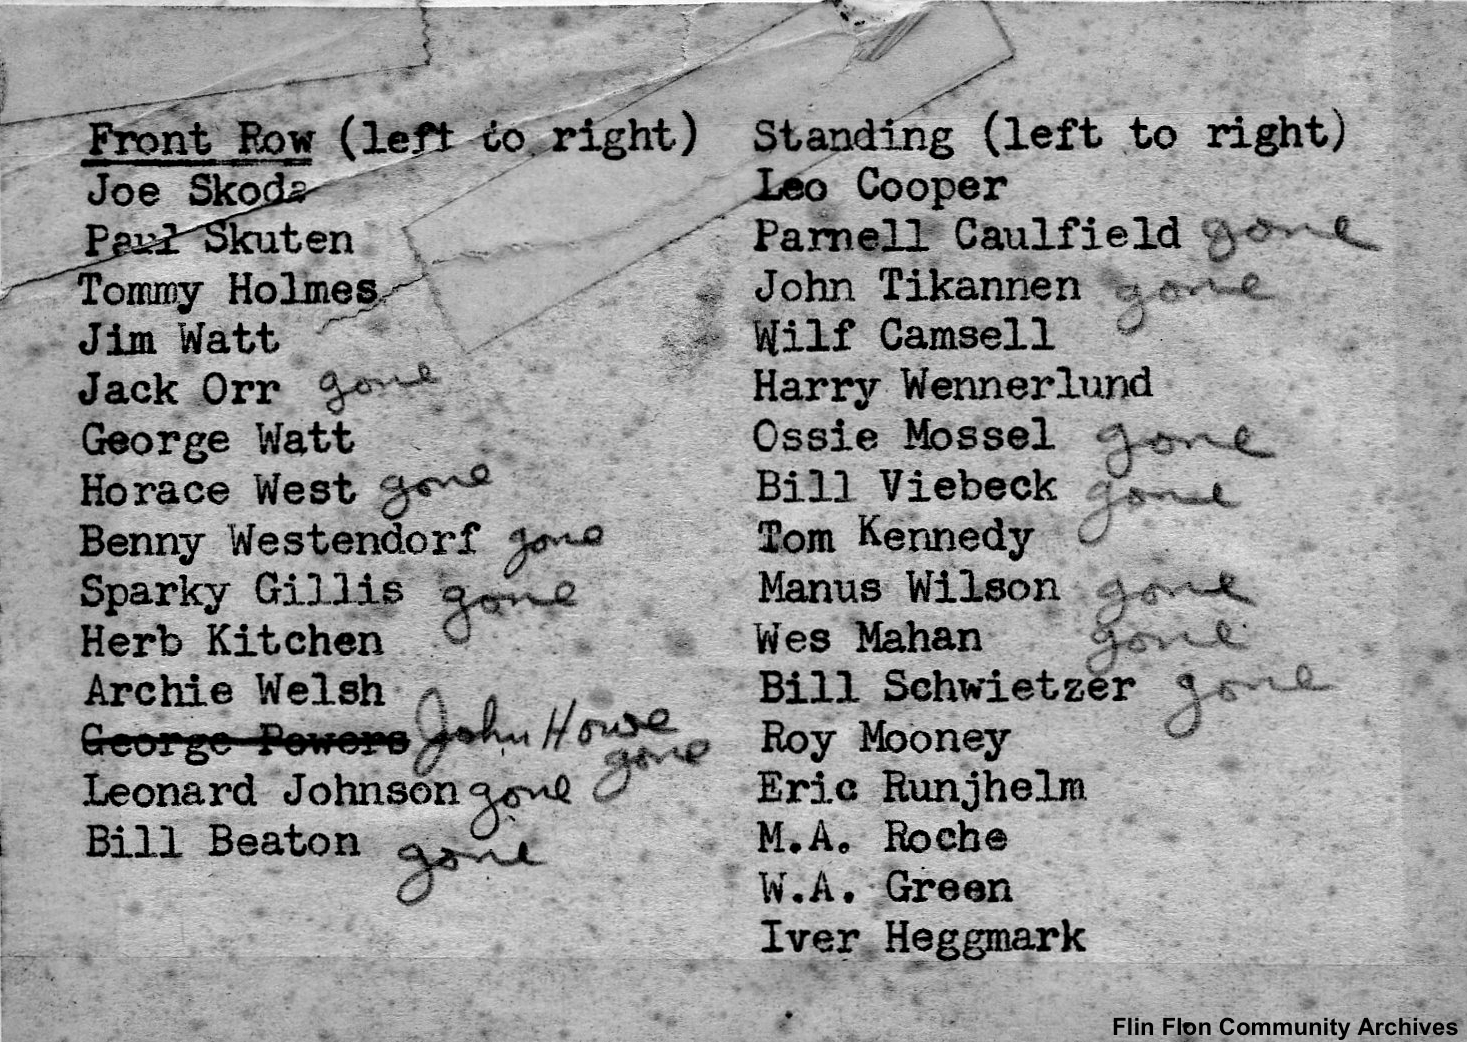 Front Row (left to right)
Joe Skoda
Paul Skuten
Tommy Holmes
Jim Watt
Jack Orr gone
George Watt
Horace West gone
Benny Westendorf gone
Sparky Gillis gone
Herb Kitchen
Archie Welsh
George Powers John Howe gone
Leonard Johnson gone
Bill Beaton gone
Standing (left to right)
Leo Cooper
Parnell Caulfield gone
John Tikannen gone
Wilf Camsell
Harry Wennerlund
Ossie Mossel gone
Bill Viebeck gone
Tom Kennedy
Manus Wilson gone
Wes Mahan gone
Bill Schwietzer gone
Roy Mooney
Eric Runjhelm
M.A. Roche
W.A. Green
Iver Heggmark
Flin Flon Community Archives